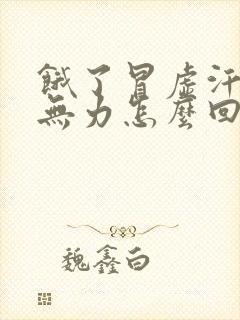 餓了冒虛汗
無力怎麼回
魏鑫白